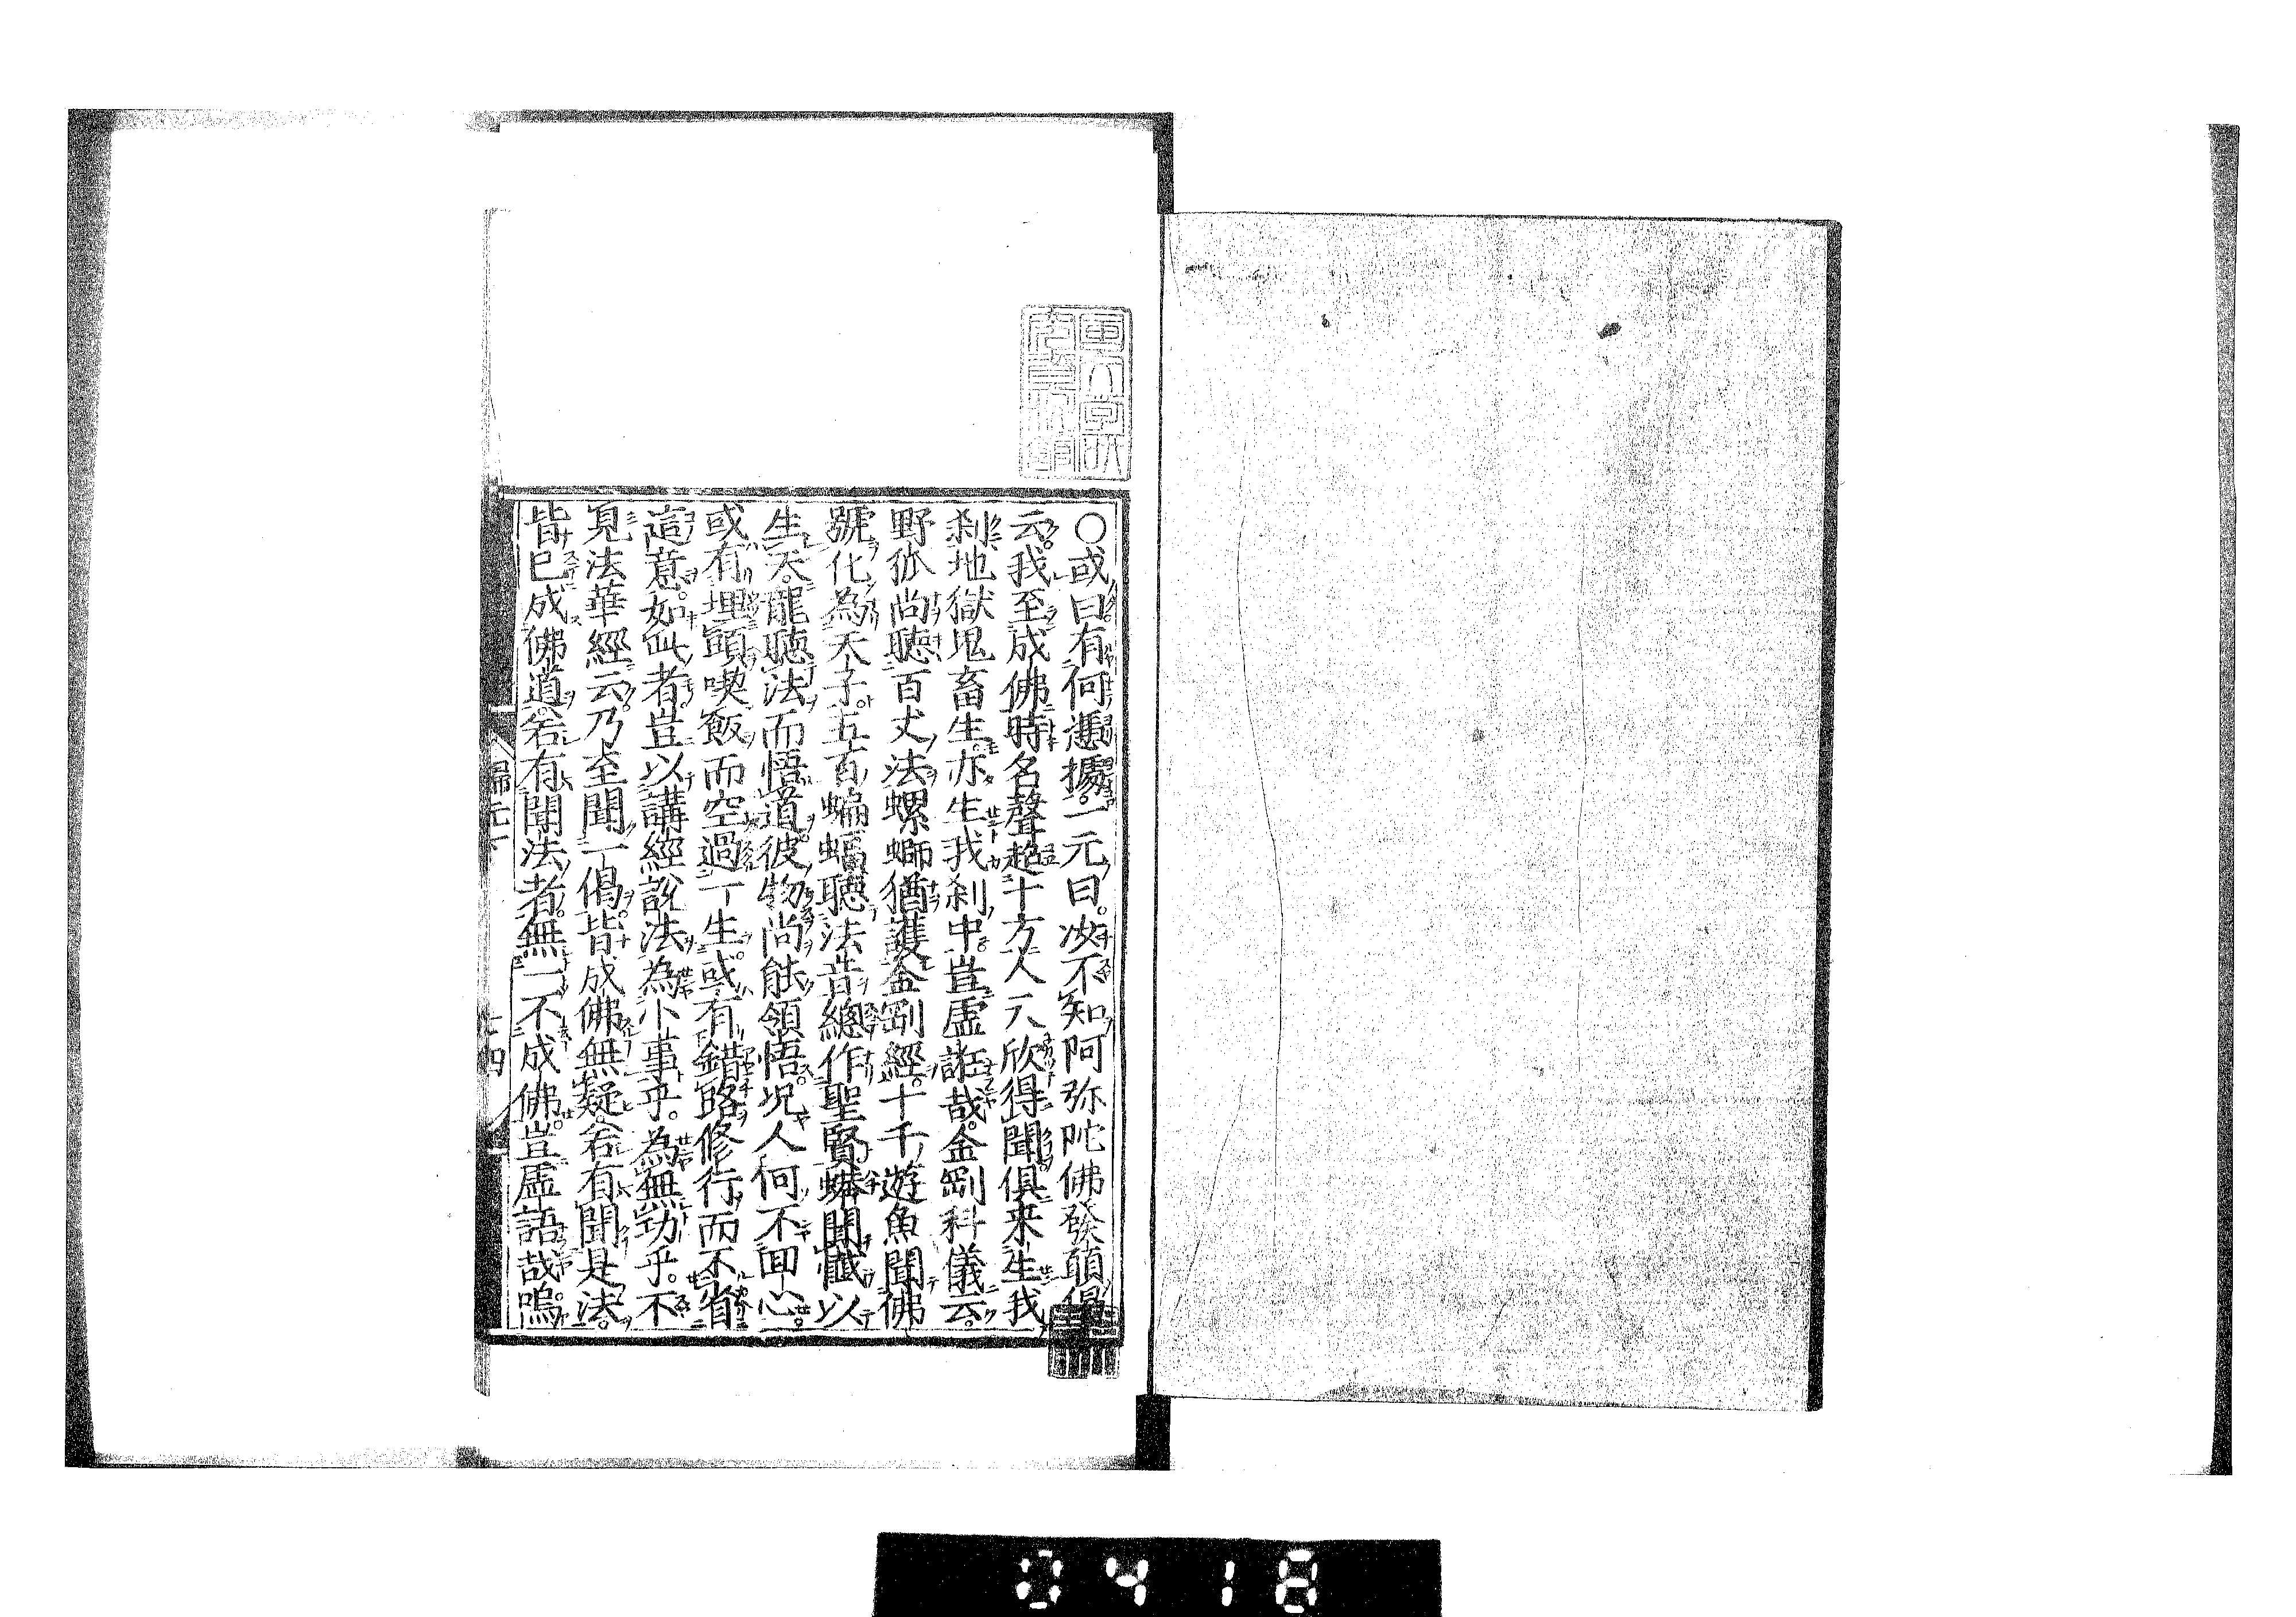 〇或曰有何憑據一元曰。汝不知阿弥陀佛發願偈
云。我至成佛時名聲超十方人天欣得聞俱来生我
刹地獄鬼畜生。亦生我刹中。豈虛誑哉。金剛科儀云。
野狐尚聽百丈法螺螄猶護金剛經。十千遊魚聞佛
號化為天子。五百蝙蝠聽法音總作聖賢蟒聞懺以
生天。龍聽法而悟道。彼物尚能領悟。況人何不回心。
或有埋頭喫飯而空過一生。或有錯路修行而不省
這意。如此者。豈以講經說法為小事乎。為無功乎。不
見法華經云。乃至聞一偈。皆成佛無疑。若有聞是法。
皆已成佛道。若有聞法者。無一不成佛。豈虛語哉。嗚
歸元下
七四
0418